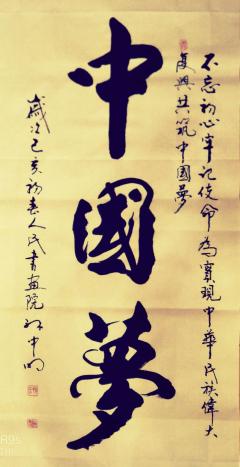 不忘初心牢记使命為實現中华民族偉大
复興共筑中國夢
中國夢
歲次己亥初春人民書畫院孙中明